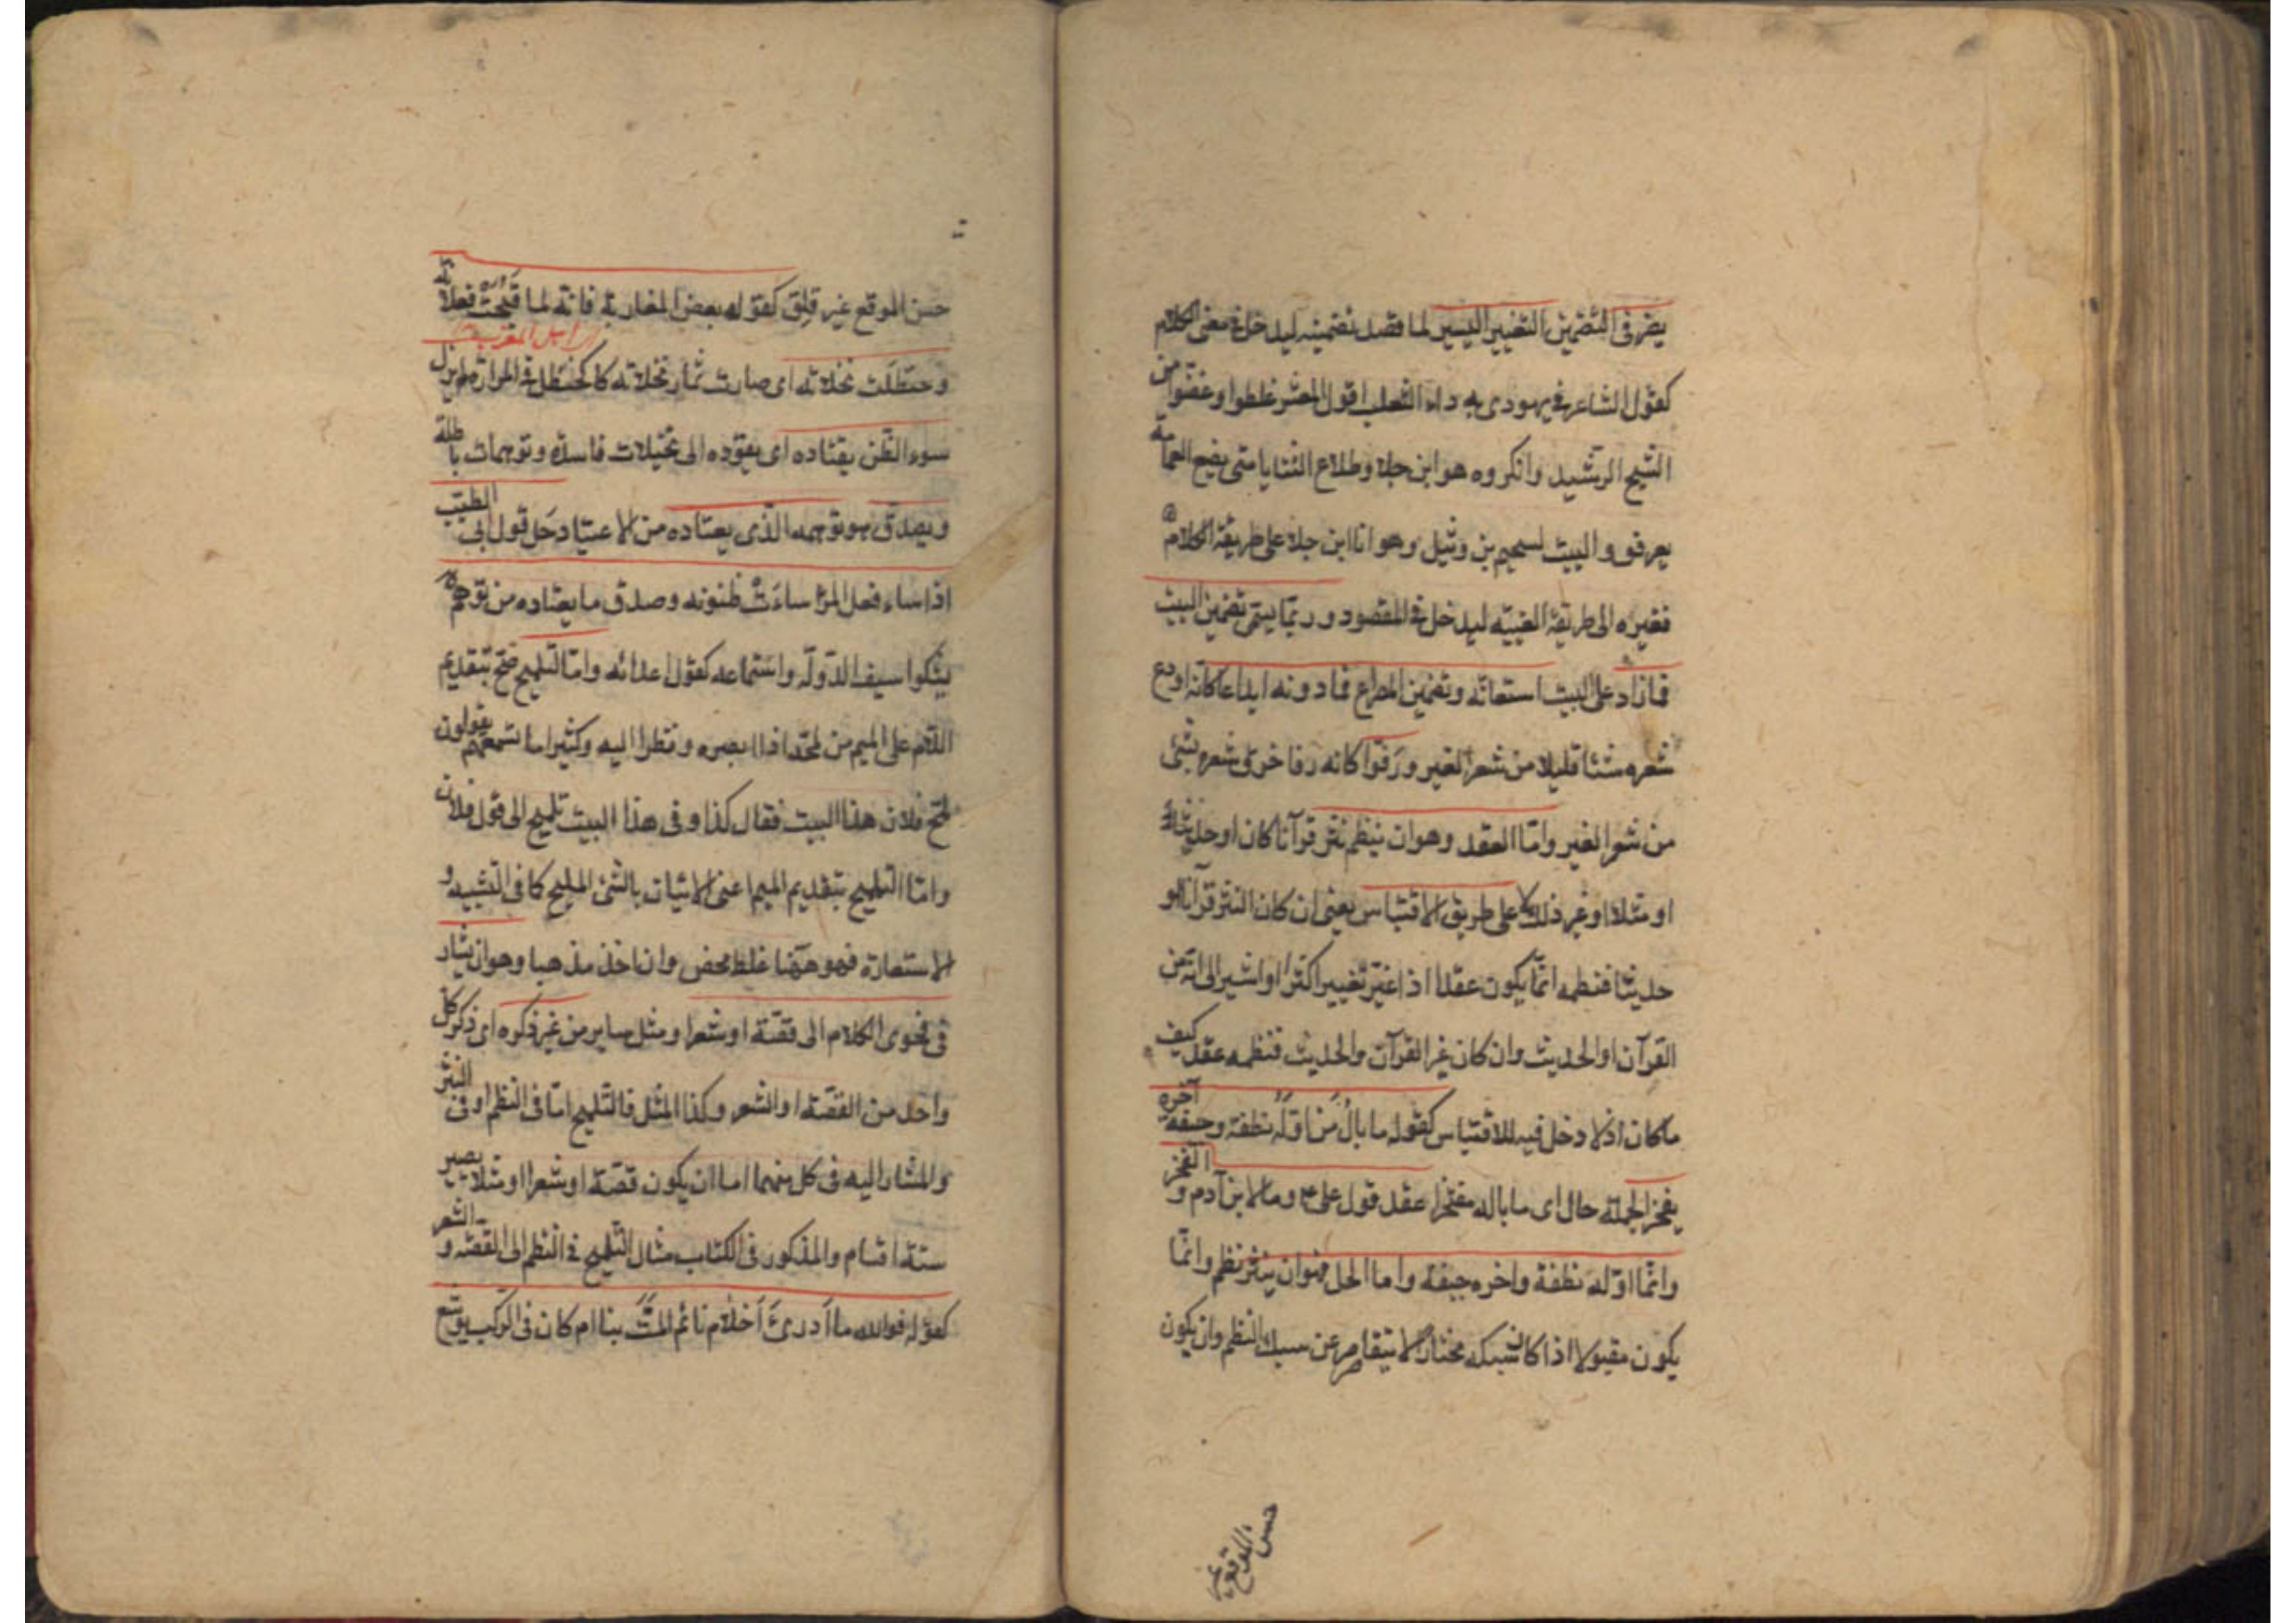 يضر فى التضمين التغيير اليسير لما قصد تضمينه ليدخل فى معنى الكلام
كقول الشاعر فى يهودى به داء الثعلب اقول لمعشر غلطوا وغضوا من
الشيخ الرشيد وانكروه هو ابن جلا وطلاع الثنايا متى يضع العمامة
يعرفوه والبيت لسحيم بن وثيل وهو انا ابن جلا على طريقة الكلام
فغيره الى طريقة الغيبة ليدخل فى المقصود وربما يسمى تضمين البيت
فما زاد على البيت استعانة وتضمين المصراع فما دونه ايداعا كانه اودع
شعره شيئا قليلا من شعر الغير ورفوا كانه رفا خرق شعره بشئ
من شعر الغير واما العقد وهو ان ينظم نثر قرآنا كان او حديثا
او مثلا او غير ذلك لا على طريق الاقتباس يعنى ان كان النثر قرآنا او
حديثا فنظمه انما يكون عقدا اذا غير تغييرا كثيرا او اشير الى انه من
القرآن او الحديث وان كان غير القرآن والحديث فنظمه عقد كيف
ما كان اذ لا دخل فيه للاقتباس كقوله ما بال من اوله نطفة وجيفة آخره
يفخر الجملة حال اى ما باله مفتخرا عقد قول على ع وما لابن آدم والفخر
وانما اوله نطفة واخره جيفة واما الحل فهو ان ينثر نظم وانما
يكون مقبولا اذا كان سبكه مختارا لا يتقاصر عن سبك النظم وان يكون
حسن الموقع غير
حسن الموقع غير قلق كقوله بعض المغاربة فانه لما قبحت فعلاته
اى اهل المغرب
وحنظلت نخلاته اى صارت ثمار نخلاته كالحنظل فى المرارة لم يزل
سوء الظن يقتاده اى يقوده الى تخيلات فاسدة وتوهمات باطلة
ويصدق هو توهمه الذى يعتاده من الاعتياد حل قول ابى الطيب
اذا ساء فعل المرء ساءت ظنونه وصدق ما يعتاده من توهم
يشكوا سيف الدولة واستماعه كقول اعدائه واما التلميح صح بتقديم
اللام على الميم من لمحه اذا ابصره ونظر اليه وكثيرا ما تسمعهم يقولون
لمح فلان هذا البيت فقال كذا وفى هذا البيت تلميح الى قول فلان
واما التمليح بتقديم الميم اعنى الاتيان بالشئ المليح كما فى التشبيه و
الاستعارة فهو ههنا غلط محض وان اخذ مذهبا وهو ان يشار
فى فحوى الكلام الى قصة او شعر او مثل ساير من غير ذكره اى ذكر كل
واحد من القصة او الشعر وكذا المثل فالتلميح اما فى النظم او فى النثر
والمشار اليه فى كل منهما اما ان يكون قصة او شعرا او مثلا يصير
ستة اقسام والمذكور فى الكتاب مثال التلميح فى النظم الى القصة والشعر
كقوله فوالله ما ادرى أأحلام نائم المت بنا ام كان فى الركب يوشع